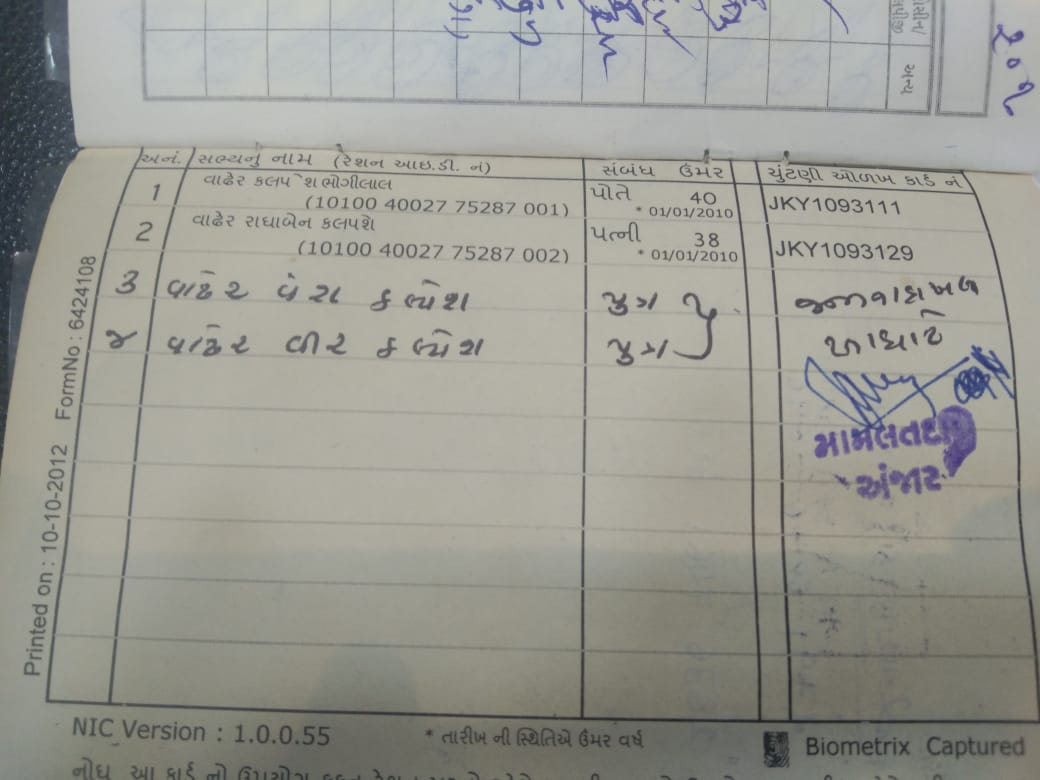 ન્ય
અનં. સભ્યનું નામ (રેશન આઇ.ડી. નં) સંબંધ ઉંમર ચુંટણી ઓળખ કાર્ડ નં
1 વાઢેર કલપેશ ભોગીલાલ પોતે 40 JKY1093111
(10100 40027 75287 001) * 01/01/2010
2 વાઢેર રાધાબેન કલપશે પત્ની 38 JKY1093129
(10100 40027 75287 002) * 01/01/2010
3 વાઢેર વંશ કલ્પેશ પુત્ર
૪ વાઢેર વીર કલ્પેશ પુત્ર
મામલતદાર
અંજાર
Printed on : 10-10-2012 FormNo : 6424108
NIC Version : 1.0.0.55 * તારીખ ની સ્થિતિએ ઉંમર વર્ષ Biometrix Captured
નોંધ આ કાર્ડ નો ઉપયોગ